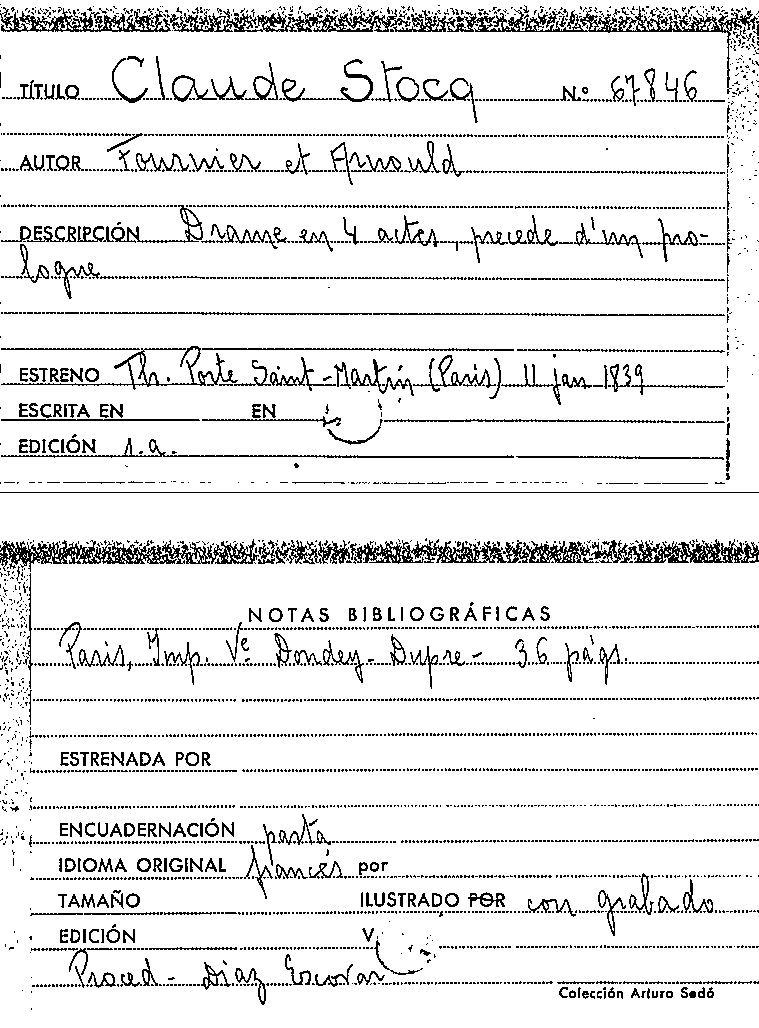 TÍTULO Claude Stocq N.º 67846
AUTOR Fournier et Arnould
DESCRIPCIÓN Drame en 4 actes, precede d'un pro-
logue
ESTRENO Th. Porte Saint-Martin (Paris) 11 jan 1839
ESCRITA EN EN
EDICIÓN s.a.
NOTAS BIBLIOGRÁFICAS
Paris, Imp. Vᵉ Dondey-Dupre- 36 págs.
ESTRENADA POR
ENCUADERNACIÓN pasta
IDIOMA ORIGINAL francés por
TAMAÑO ILUSTRADO POR con grabado
EDICIÓN V
Proced- Diaz Escovar
Colección Arturo Sedó